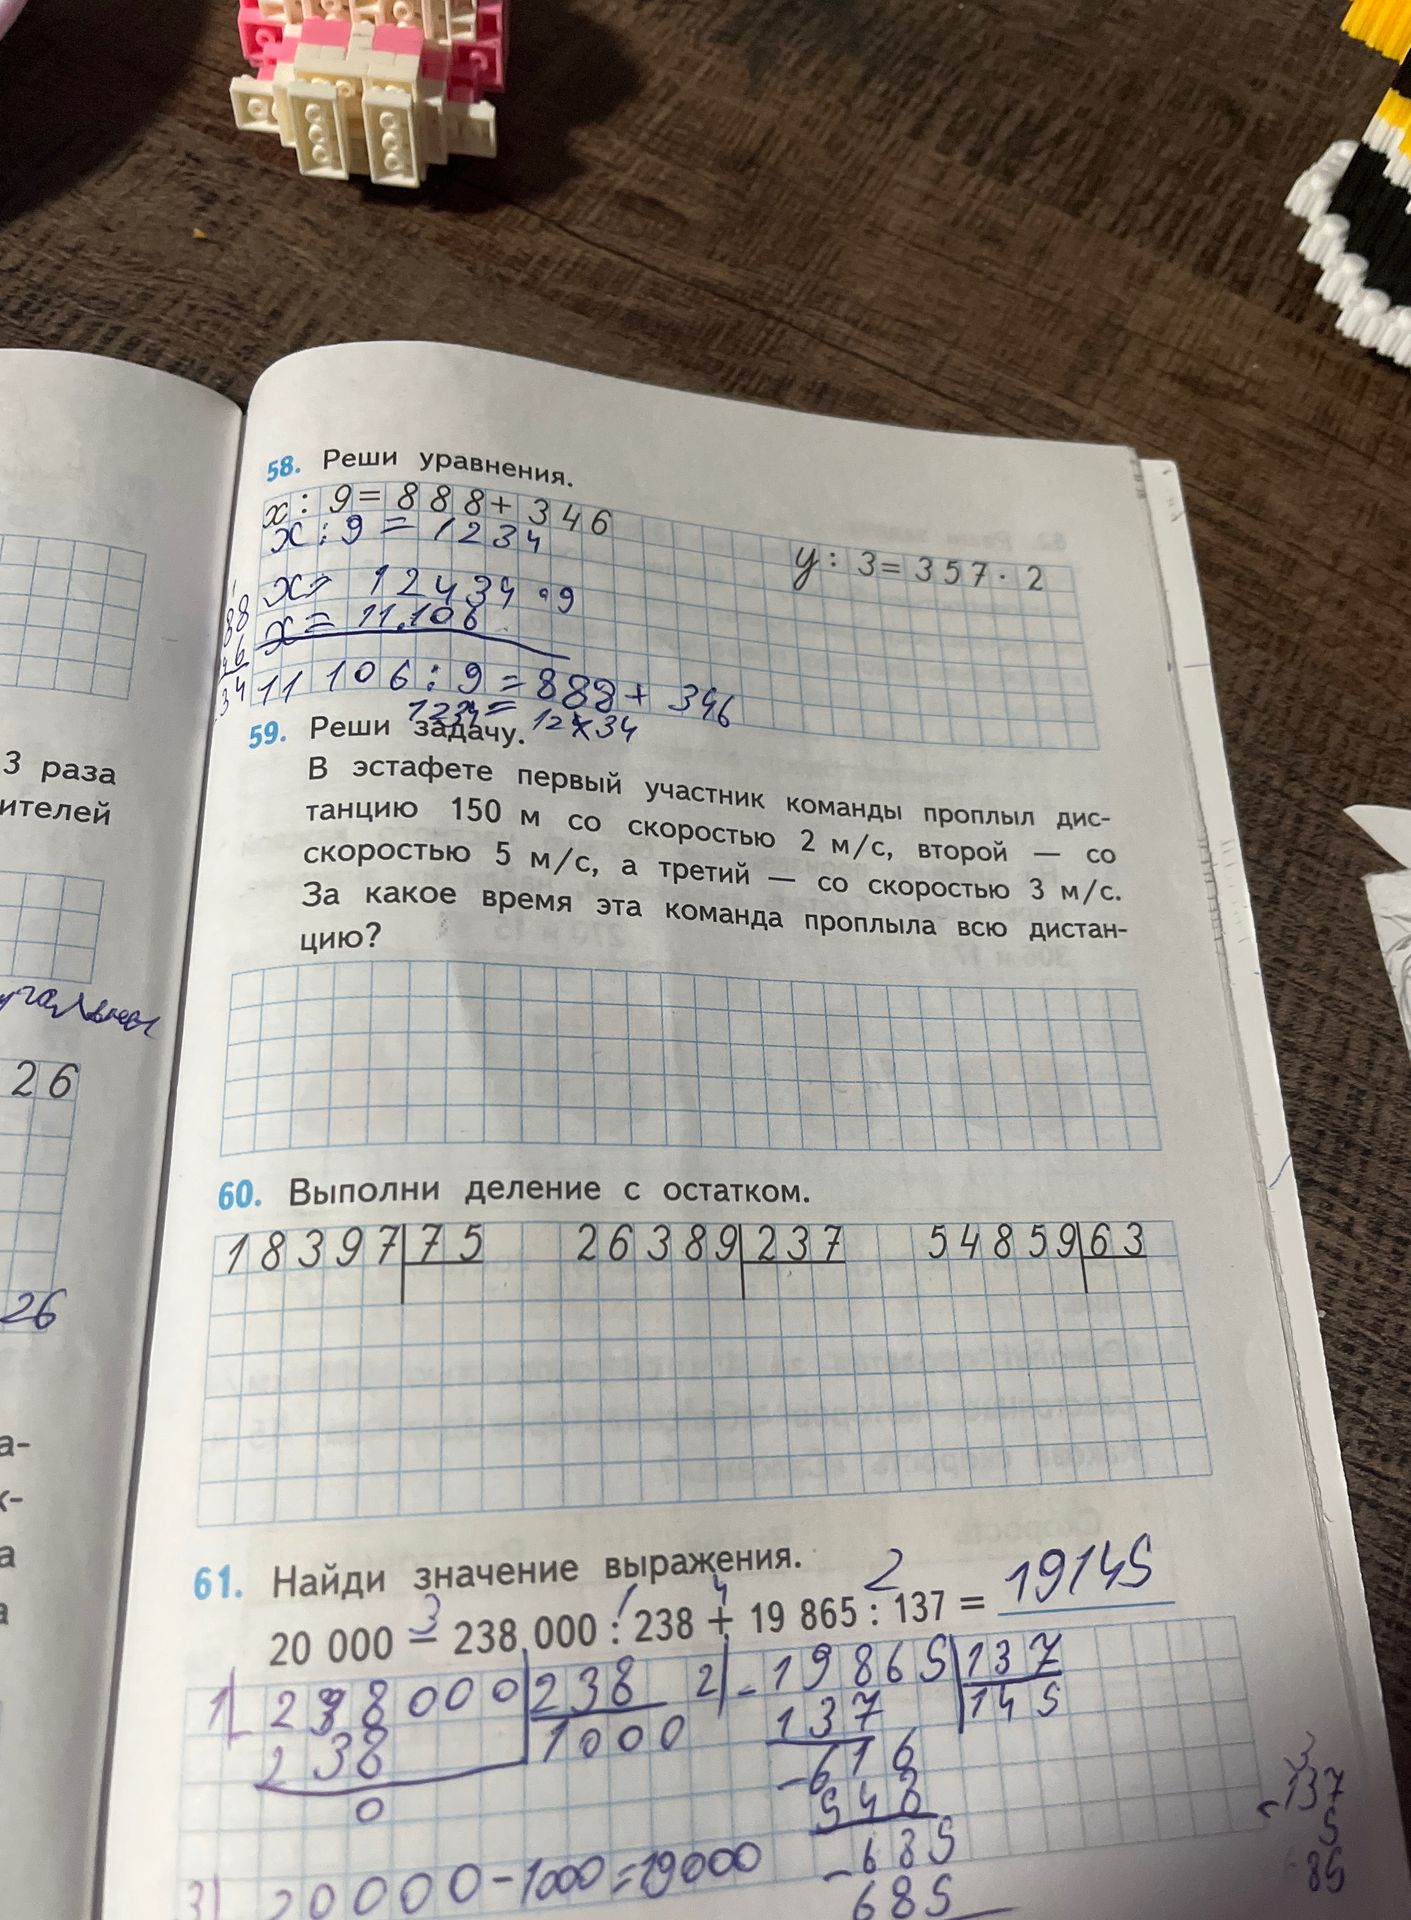 3 раза
ителей
26
26
58. Реши уравнения.
x : 9 = 888 + 346
y : 3 = 357 · 2
x : 9 = 1234
x = 12434 · 9
x = 11.106
11 106 : 9 = 888 + 346
1234 = 12434
59. Реши задачу.
В эстафете первый участник команды проплыл дис-
танцию 150 м со скоростью 2 м/с, второй — со
скоростью 5 м/с, а третий — со скоростью 3 м/с.
За какое время эта команда проплыла всю дистан-
цию?
60. Выполни деление с остатком.
18397 75 26389 237 54859 63
61. Найди значение выражения.
3 1 4 2
20 000 − 238 000 : 238 + 19 865 : 137 = 19145
1) 238000 238 2) - 19865 137
238 1000 137 145
0 - 616
548
- 685
685
3) 20000 - 1000 = 19000
3
137
5
85